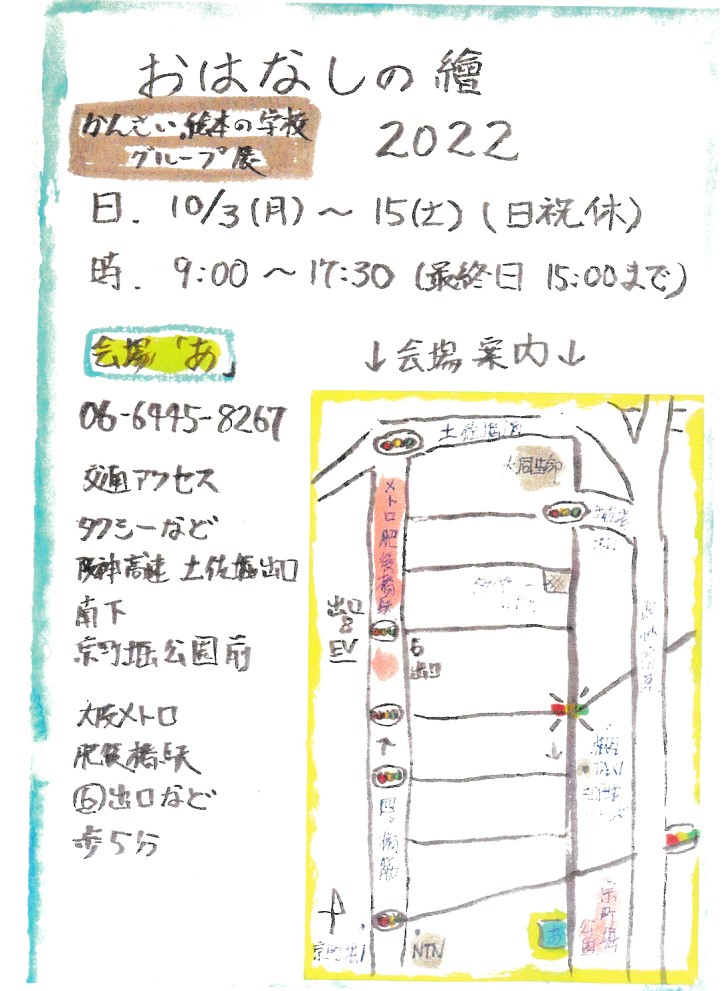 おはなしの繪
かんさい絵本の学校
グループ展
2022
日. 10/3(月)～15(土)(日祝休)
時. 9:00～17:30(最終日 15:00まで)
会場「あ」
↓会場案内↓
06-6445-8267
交通アクセス
タクシーなど
阪神高速 土佐堀出口
南下
京町堀公園前
大阪メトロ
肥後橋駅
⑥出口など
歩5分
土佐堀通
大同生命
メトロ肥後橋駅
出口
8
EV
6
出口
↑
四ツ橋筋
↓
京町堀
公園
あ
NTN
京町堀1